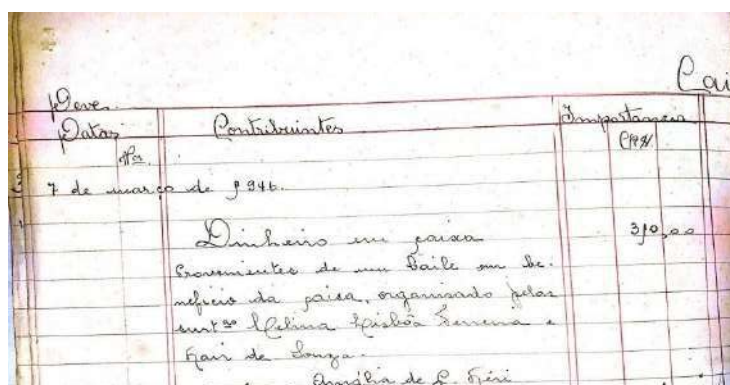 Cai
Deve
Datas Contribuintes Importancia
Nos Cr$
7 de março de 1946.
Dinheiro em caixa 310,00
Provenientes de um Baile em be-
neficio da caixa, organisado pelas
Lisbôa Ferreira e
de Souza.
Amélia de L.